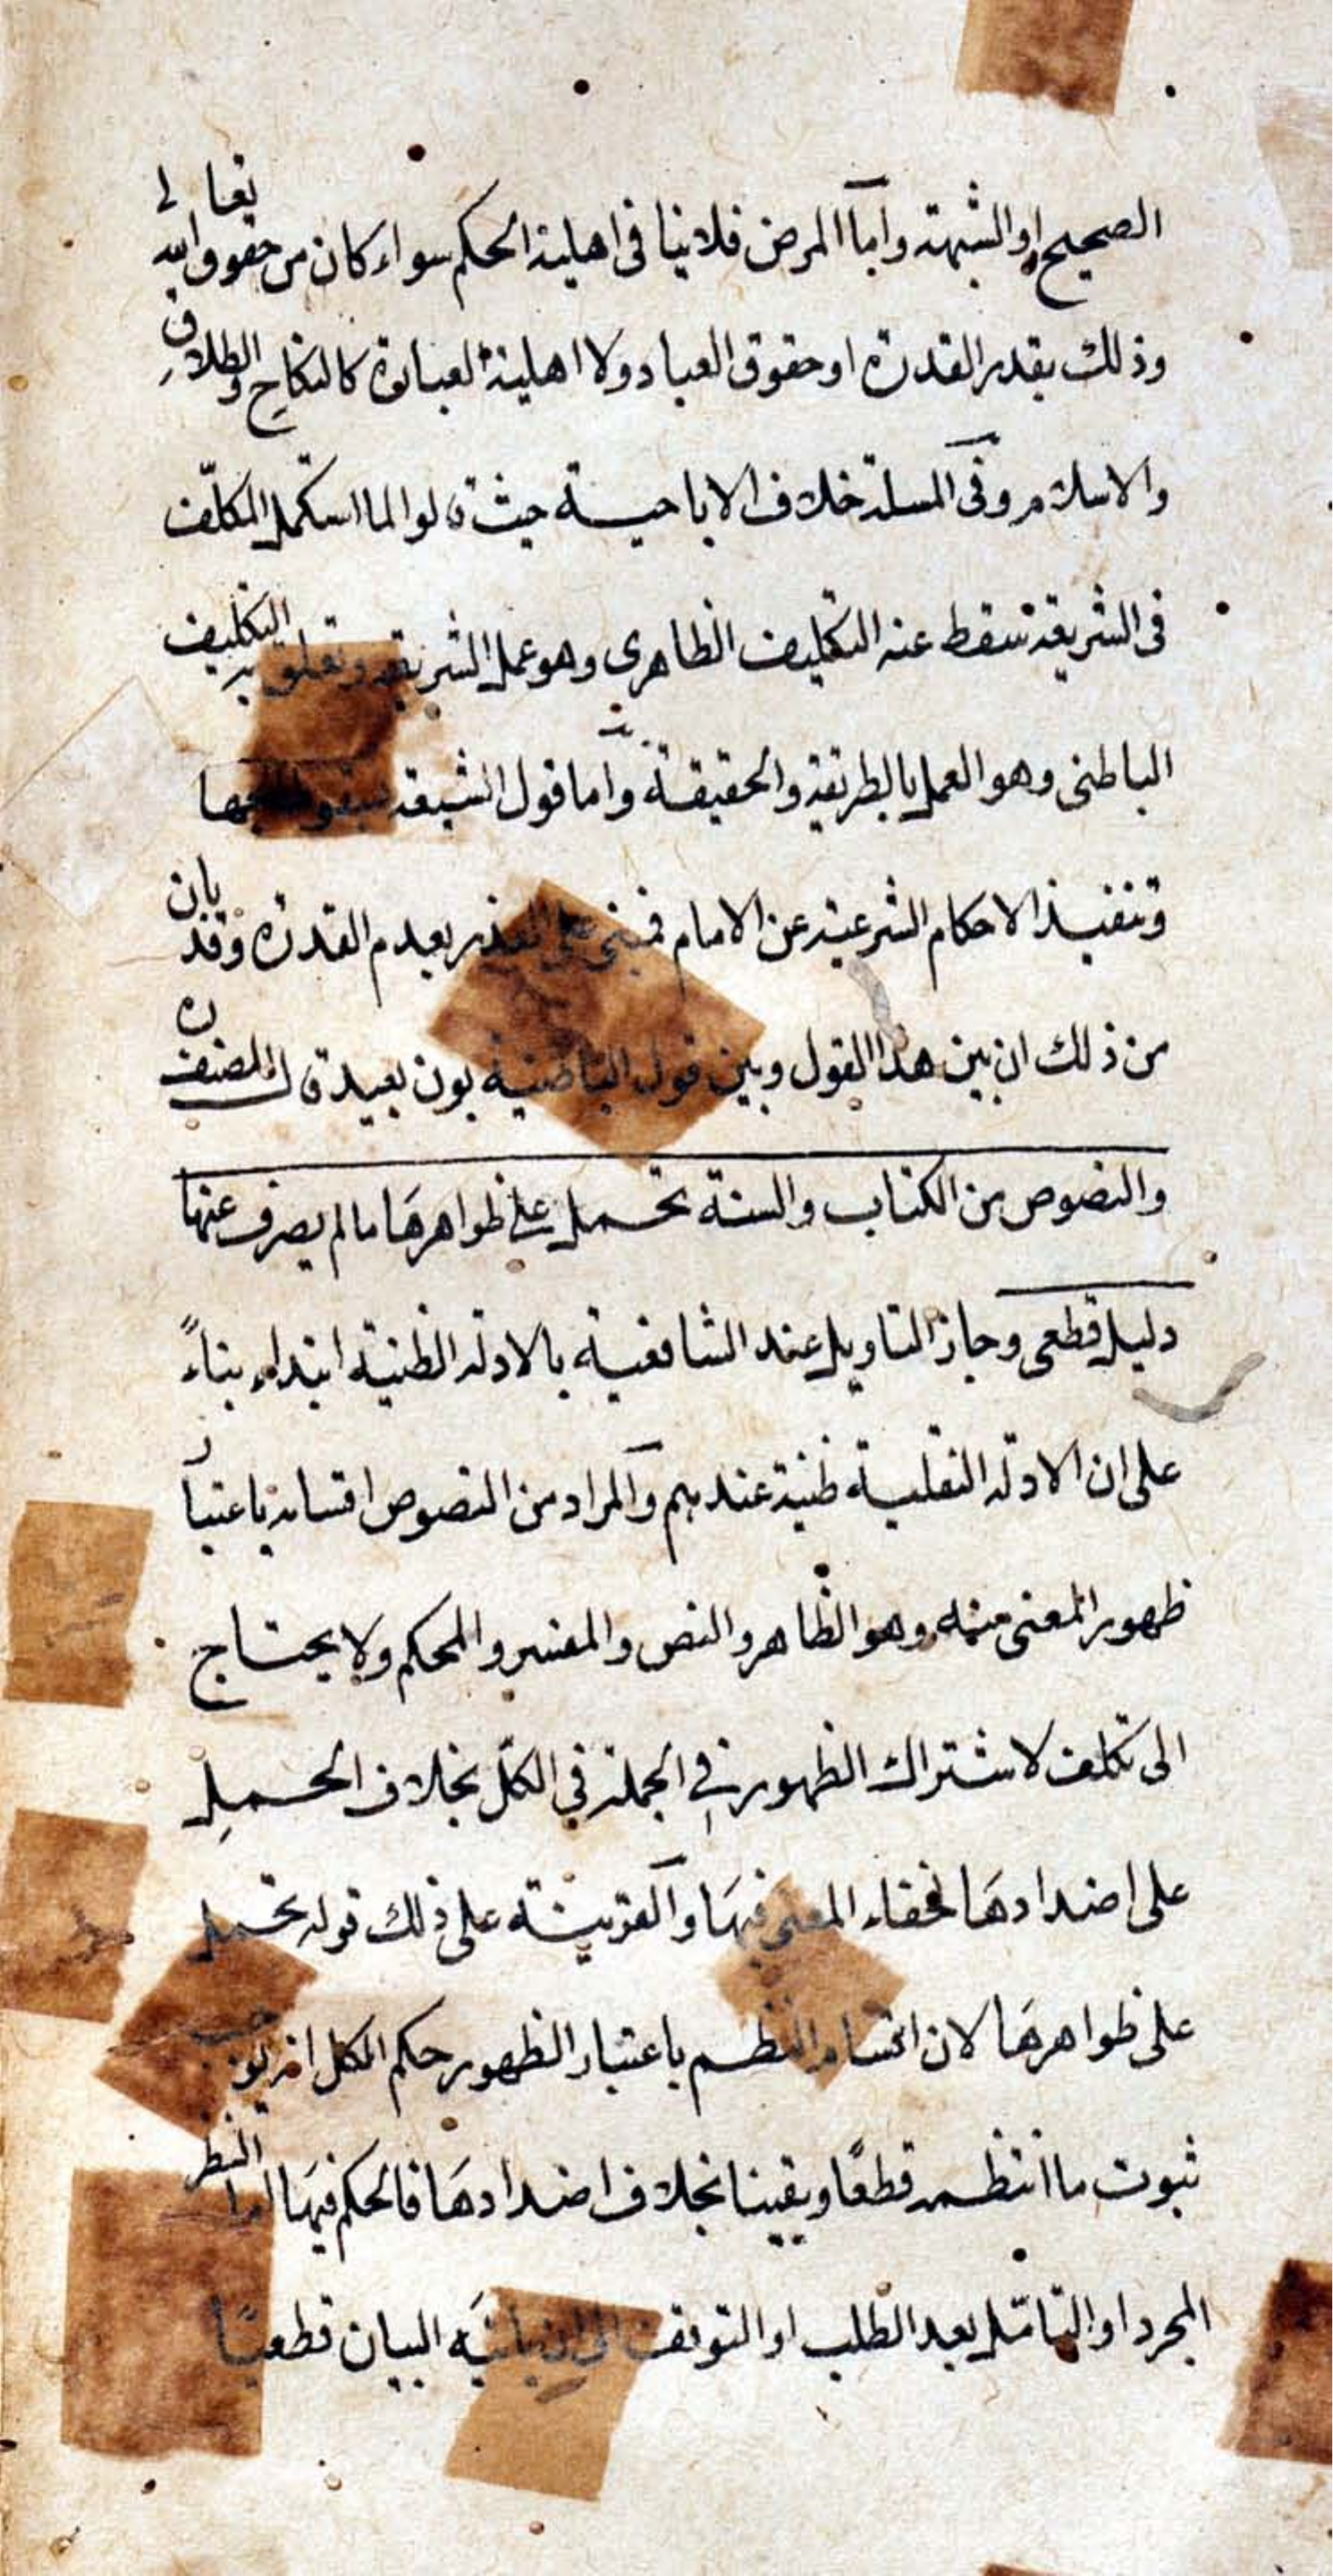 الصحيح او الشبهة واما المرض فلا ينافى اهلية الحكم سواء كان من حقوق الله تعالى
وذلك بقدر القدرة او حقوق العباد ولا اهلية العبارة كالنكاح والطلاق
والاسلام وفى المسلة خلاف الاباحية حيث قالوا لما استكمل المكلف
فى الشريعة سقط عنه التكليف الظاهرى وهو عمل الشريعة وتعلق به التكليف
الباطنى وهو العمل بالطريقة والحقيقة واما قول الشيعة
وتنفيذ الاحكام الشرعية عن الامام فمبنى على العذر بعدم القدرة وقد بان
من ذلك ان بين هذا القول وبين قول الباطنية بون بعيد قال المصنف ره
والنصوص من الكتاب والسنة تحمل على ظواهرها ما لم يصرف عنها
دليل قطعى وجاز التاويل عند الشافعية بالادلة الظنية ابتداء بناءً
على ان الادلة النقلية ظنية عندهم والمراد من النصوص اقسامه باعتبار
ظهور المعنى منه وهو الظاهر والنص والمفسر والمحكم ولا يحتاج
الى تكلف لاشتراك الظهور فى الجملة فى الكل بخلاف الحمل
على اضدادها لخفاء المعنى فيها والقرينة على ذلك قوله تحمل
على ظواهرها لان اقسام النظم باعتبار الظهور حكم الكل انه يوجب
ثبوت ما انتظمه قطعًا ويقينا بخلاف اضدادها فالحكم فيها اما النظر
المجرد او التامل بعد الطلب او التوقف الى ان ياتيه البيان قطعيًا